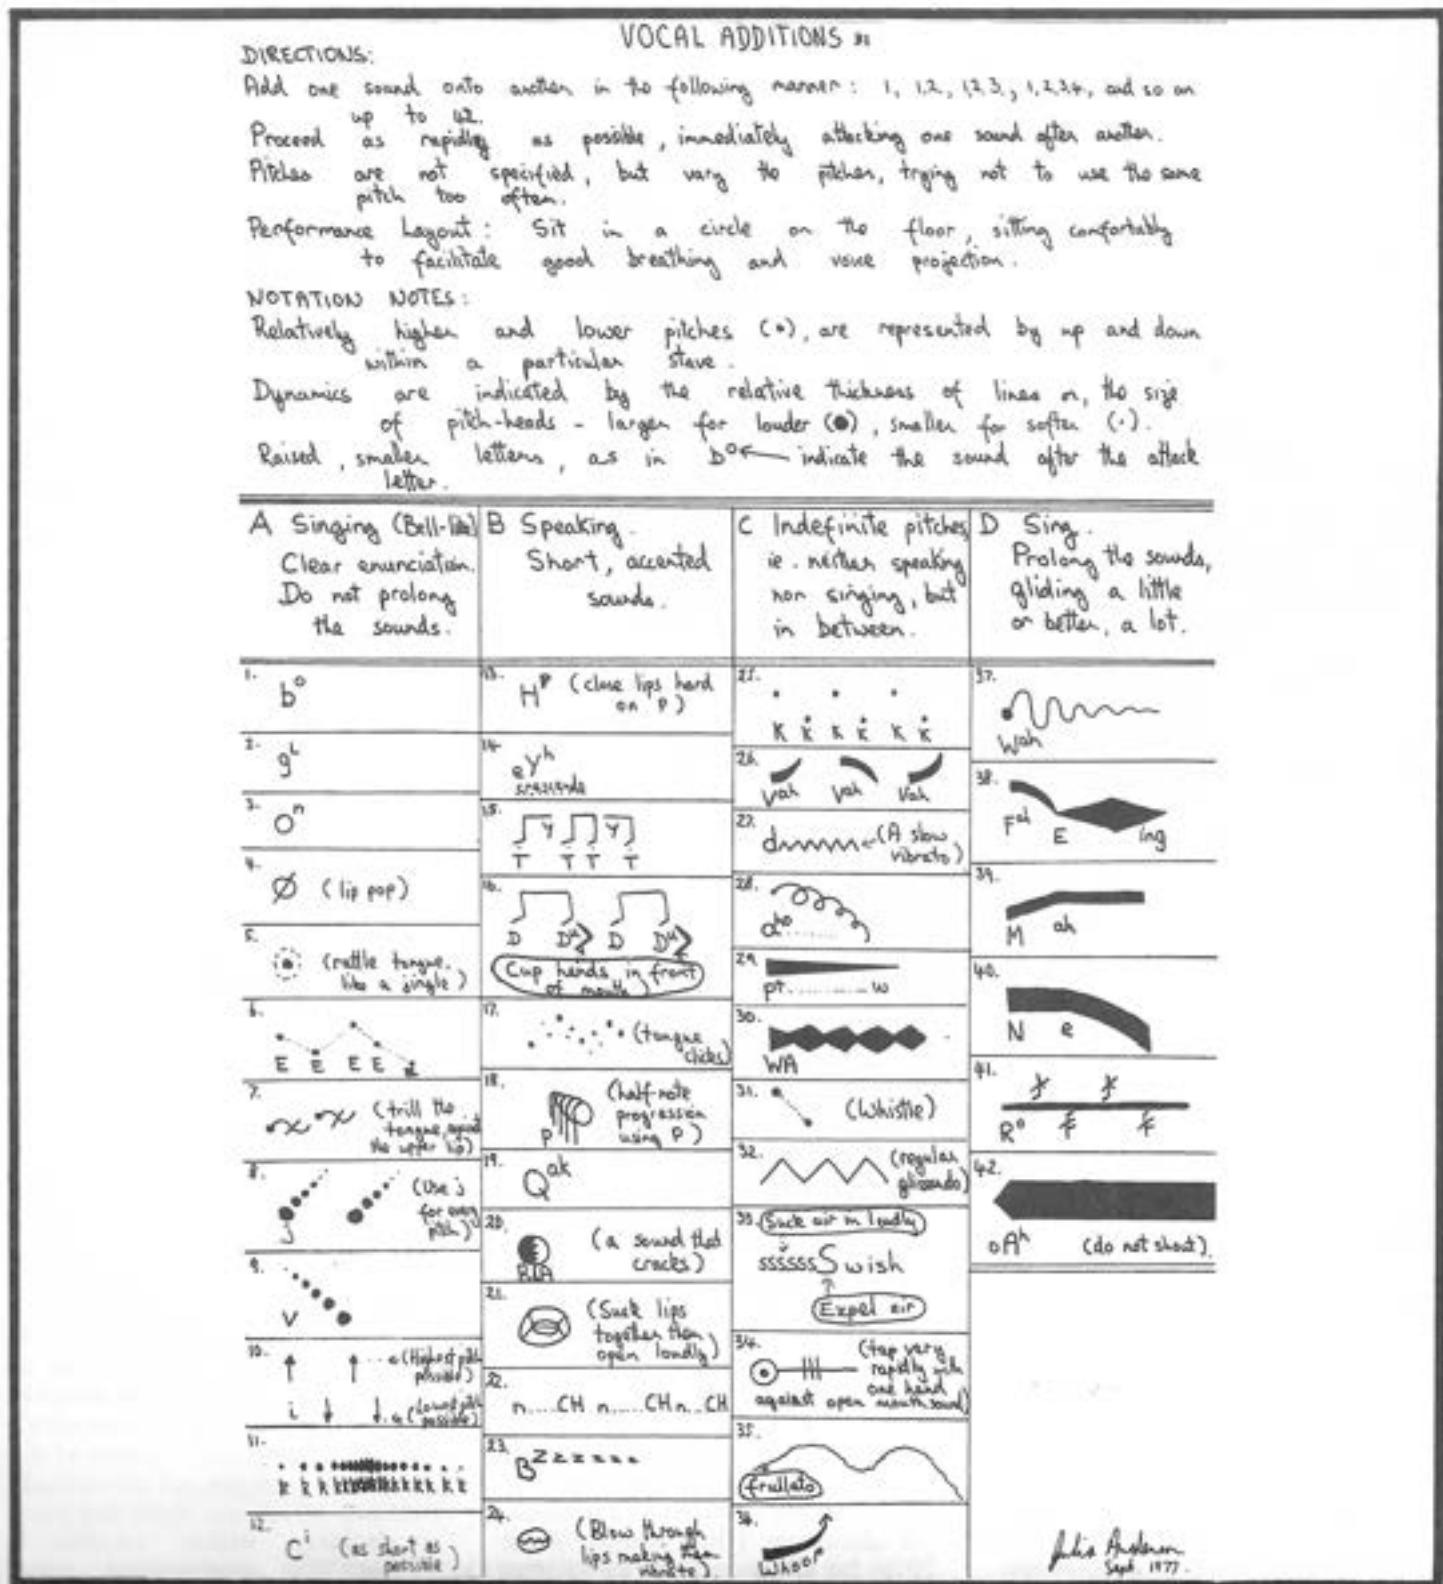 VOCAL ADDITIONS
DIRECTIONS:
Add one sound onto another in the following manner: 1, 1,2, 1,2,3, 1,2,3,4, and so on
up to 42.
Proceed as rapidly as possible, immediately attacking one sound after another.
Pitches are not specified, but vary the pitches, trying not to use the same
pitch too often.
Performance Layout: Sit in a circle on the floor, sitting comfortably
to facilitate good breathing and voice projection.
NOTATION NOTES:
Relatively higher and lower pitches (•), are represented by up and down
within a particular stave.
Dynamics are indicated by the relative thickness of lines or, the size
of pitch-heads - larger for louder (●), smaller for softer (·).
Raised, smaller letters, as in D° ← indicate the sound after the attack
letter.
A Singing (Bell-like)
Clear enunciation.
Do not prolong
the sounds.
1. b o
2. g L
3. O n
4. Ø (lip pop)
5. (rattle tongue
like a jingle)
6. E E E E
7. (trill the
tongue against
the upper lip)
8. j (Use j
for every
pitch)
9. V
10. (Highest pitch
possible)
i (Lowest pitch
possible)
11. k k k k k k k k k k k k
12. C i (as short as
possible)
B Speaking.
Short, accented
sounds.
13. H P (close lips hard
on P)
14. e Y h
15. T T T T
16. D D D D
Cup hands in front
of mouth
17. (tongue
clicks)
18. P (half-note
progression
using P)
19. Q ak
20. (a sound that
cracks)
21. (Suck lips
together then
open loudly)
22. n.....CH n......CH n...CH
23. B Z z z z z z
24. (Blow through
lips making them
vibrate).
C Indefinite pitches
ie. neither speaking
nor singing, but
in between.
25. K K K K K K
26. Vah Vah Vah
27. d (A slow
vibrato)
28.
29. pt............w
30. WA
31. (Whistle)
32. (regular
glissando)
33. Suck air in loudly
ssssssSwish
Expel air
34. (tap very
rapidly with
one hand
against open mouth sound)
35. frullato
36. Whoop
D Sing.
Prolong the sounds,
gliding a little
or better, a lot.
37. Wah
38. Fah E ing
39. M ah
40. N e
41. R o
42. oAh (do not shout).
Sept. 1977.